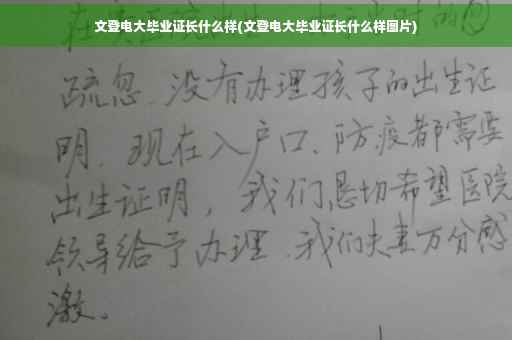 文登电大毕业证长什么样(文登电大毕业证长什么样图片)
疏忽、没有办理孩子的出生证
明、现在入户口、防疫都需要
出生证明，我们恳切希望医院
领导给予办理、我们夫妻万分感
激。